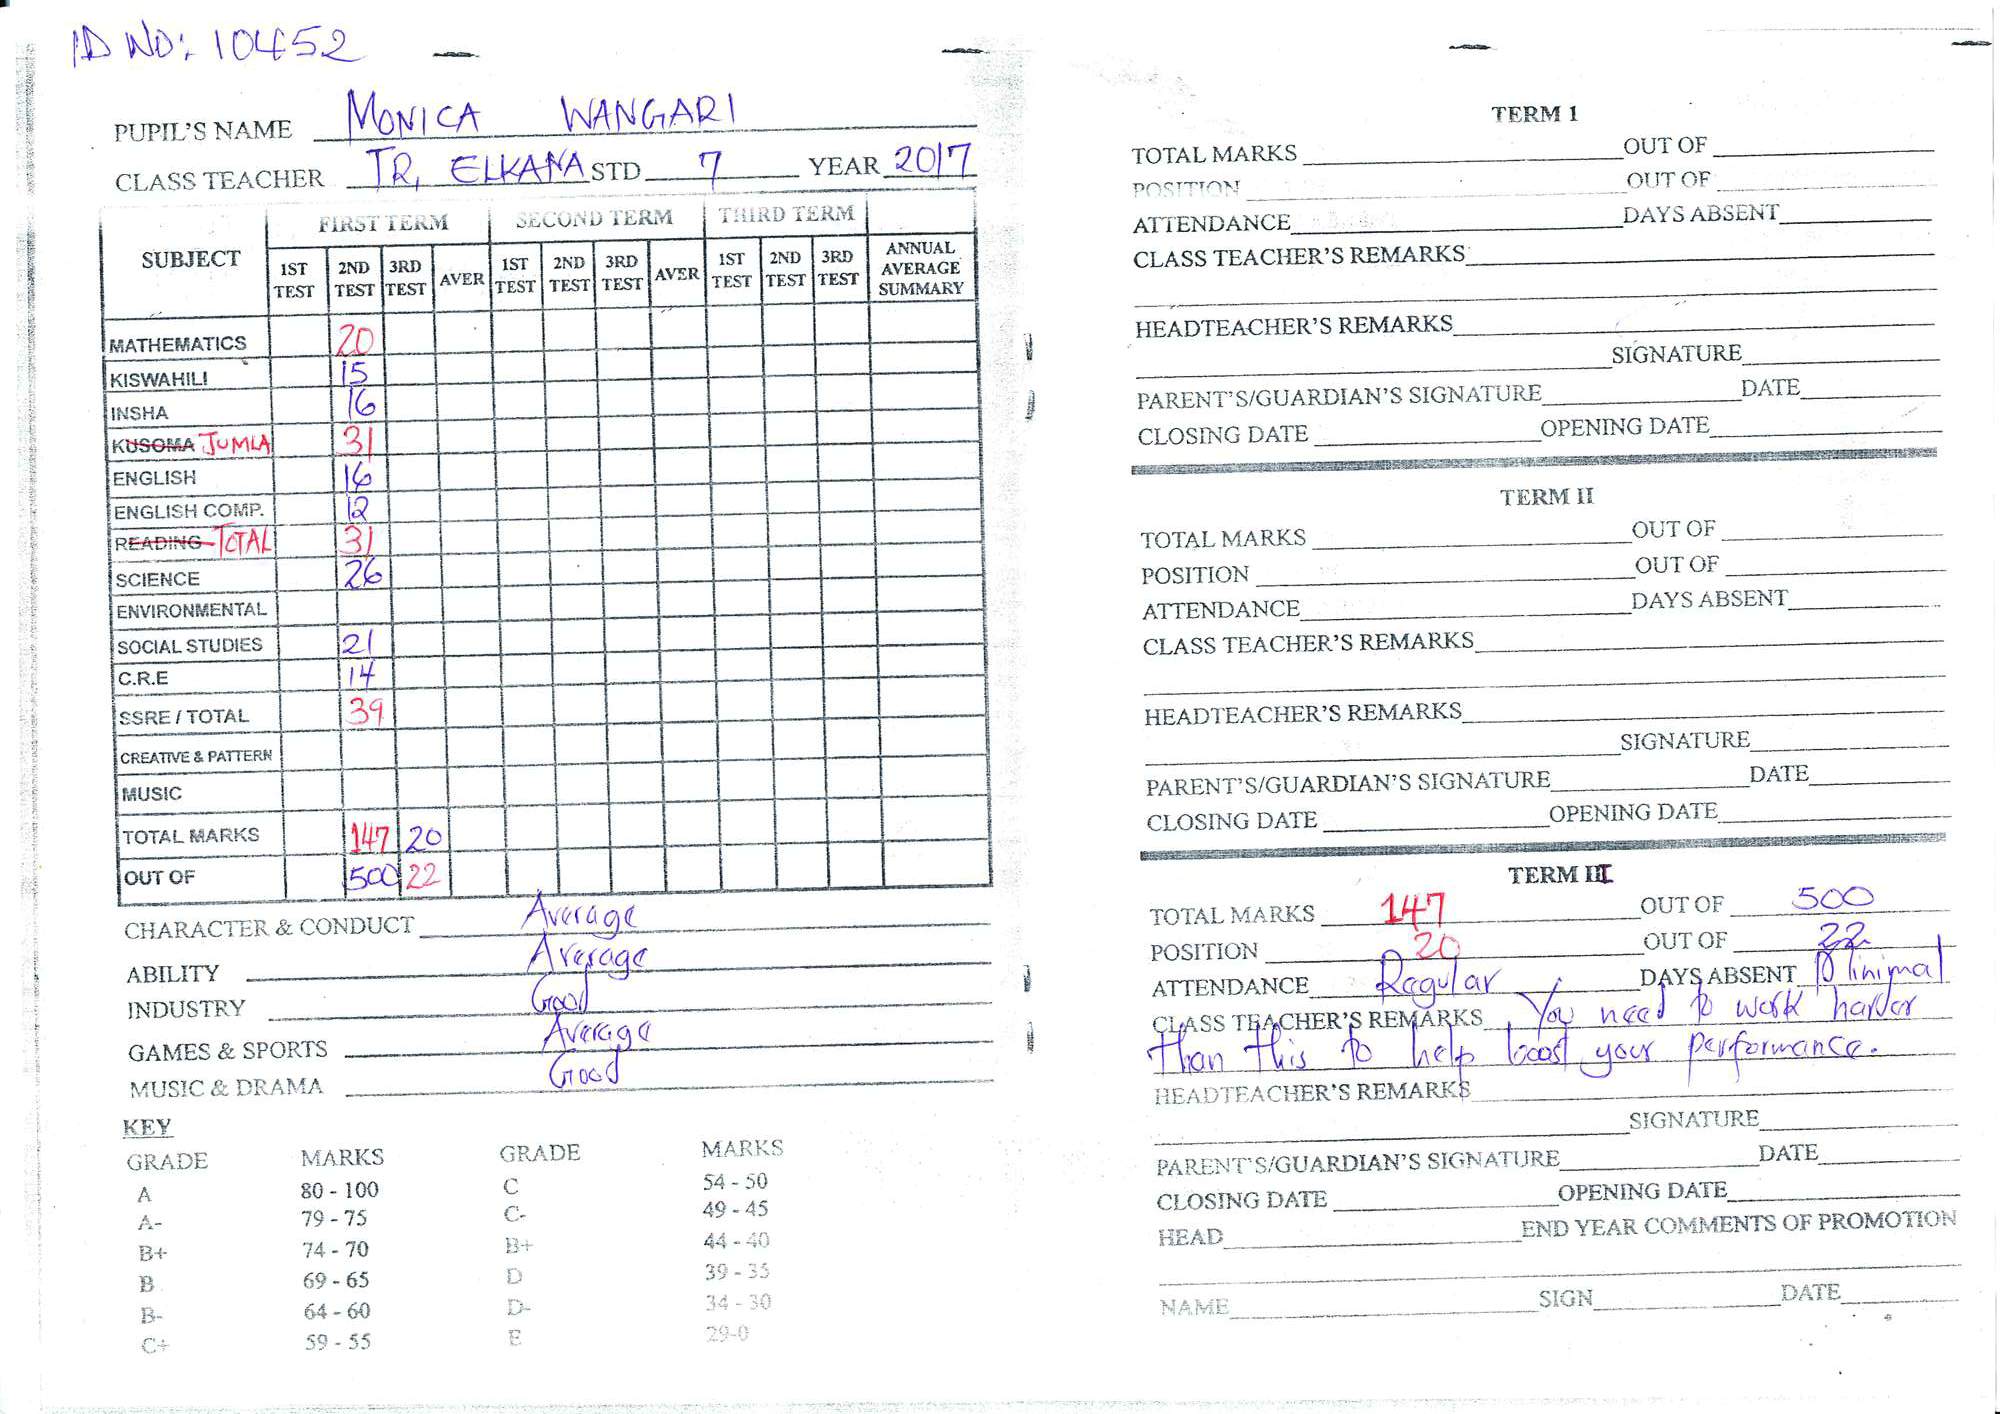 ID NO: 10452
PUPIL'S NAME MONICA WANGARI
CLASS TEACHER TR. ELKANA STD 7 YEAR 2017
SUBJECT FIRST TERM SECOND TERM THIRD TERM
1ST TEST 2ND TEST 3RD TEST AVER 1ST TEST 2ND TEST 3RD TEST AVER 1ST TEST 2ND TEST 3RD TEST ANNUAL AVERAGE SUMMARY
MATHEMATICS 20
KISWAHILI 15
INSHA 16
KUSOMA JUMLA 31
ENGLISH 16
ENGLISH COMP. 12
READING TOTAL 31
SCIENCE 26
ENVIRONMENTAL
SOCIAL STUDIES 21
C.R.E 14
SSRE / TOTAL 39
CREATIVE & PATTERN
MUSIC
TOTAL MARKS 147 20
OUT OF 500 22
CHARACTER & CONDUCT Average
ABILITY Average
INDUSTRY Good
GAMES & SPORTS Average
MUSIC & DRAMA Good
KEY
GRADE MARKS GRADE MARKS
A 80 - 100 C 54 - 50
A- 79 - 75 C- 49 - 45
B+ 74 - 70 B+ 44 - 40
B 69 - 65 D 39 - 35
B- 64 - 60 D- 34 - 30
C+ 59 - 55 E 29-0
TERM 1
TOTAL MARKS OUT OF
POSITION OUT OF
ATTENDANCE DAYS ABSENT
CLASS TEACHER'S REMARKS
HEADTEACHER'S REMARKS
SIGNATURE
PARENT'S/GUARDIAN'S SIGNATURE DATE
CLOSING DATE OPENING DATE
TERM II
TOTAL MARKS OUT OF
POSITION OUT OF
ATTENDANCE DAYS ABSENT
CLASS TEACHER'S REMARKS
HEADTEACHER'S REMARKS
SIGNATURE
PARENT'S/GUARDIAN'S SIGNATURE DATE
CLOSING DATE OPENING DATE
TERM III
TOTAL MARKS 147 OUT OF 500
POSITION 20 OUT OF 22
ATTENDANCE Regular DAYS ABSENT Minimal
CLASS TEACHER'S REMARKS You need to work harder
than this to help boost your performance.
HEADTEACHER'S REMARKS
SIGNATURE
PARENT'S/GUARDIAN'S SIGNATURE DATE
CLOSING DATE OPENING DATE
HEAD END YEAR COMMENTS OF PROMOTION
NAME SIGN DATE